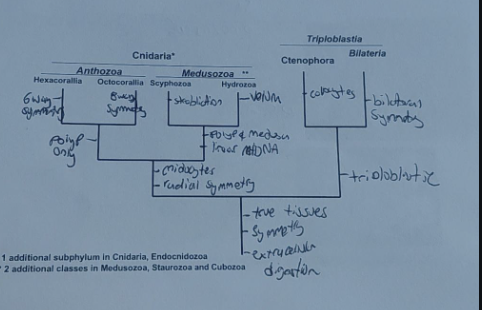 Triploblastia
Cnidaria*
Bilateria
Ctenophora
Anthozoa
Medusozoa **
Hexacorallia Octocorallia Scyphozoa Hydrozoa
symmetry
symmetry
strobilation
colocytes
bilateral
symmetry
polyp
only
polyp & medusa
linear mtDNA
cnidocytes
radial symmetry
triploblastic
true tissues
symmetry
extracellular
digestion
1 additional subphylum in Cnidaria, Endocnidozoa
* 2 additional classes in Medusozoa, Staurozoa and Cubozoa